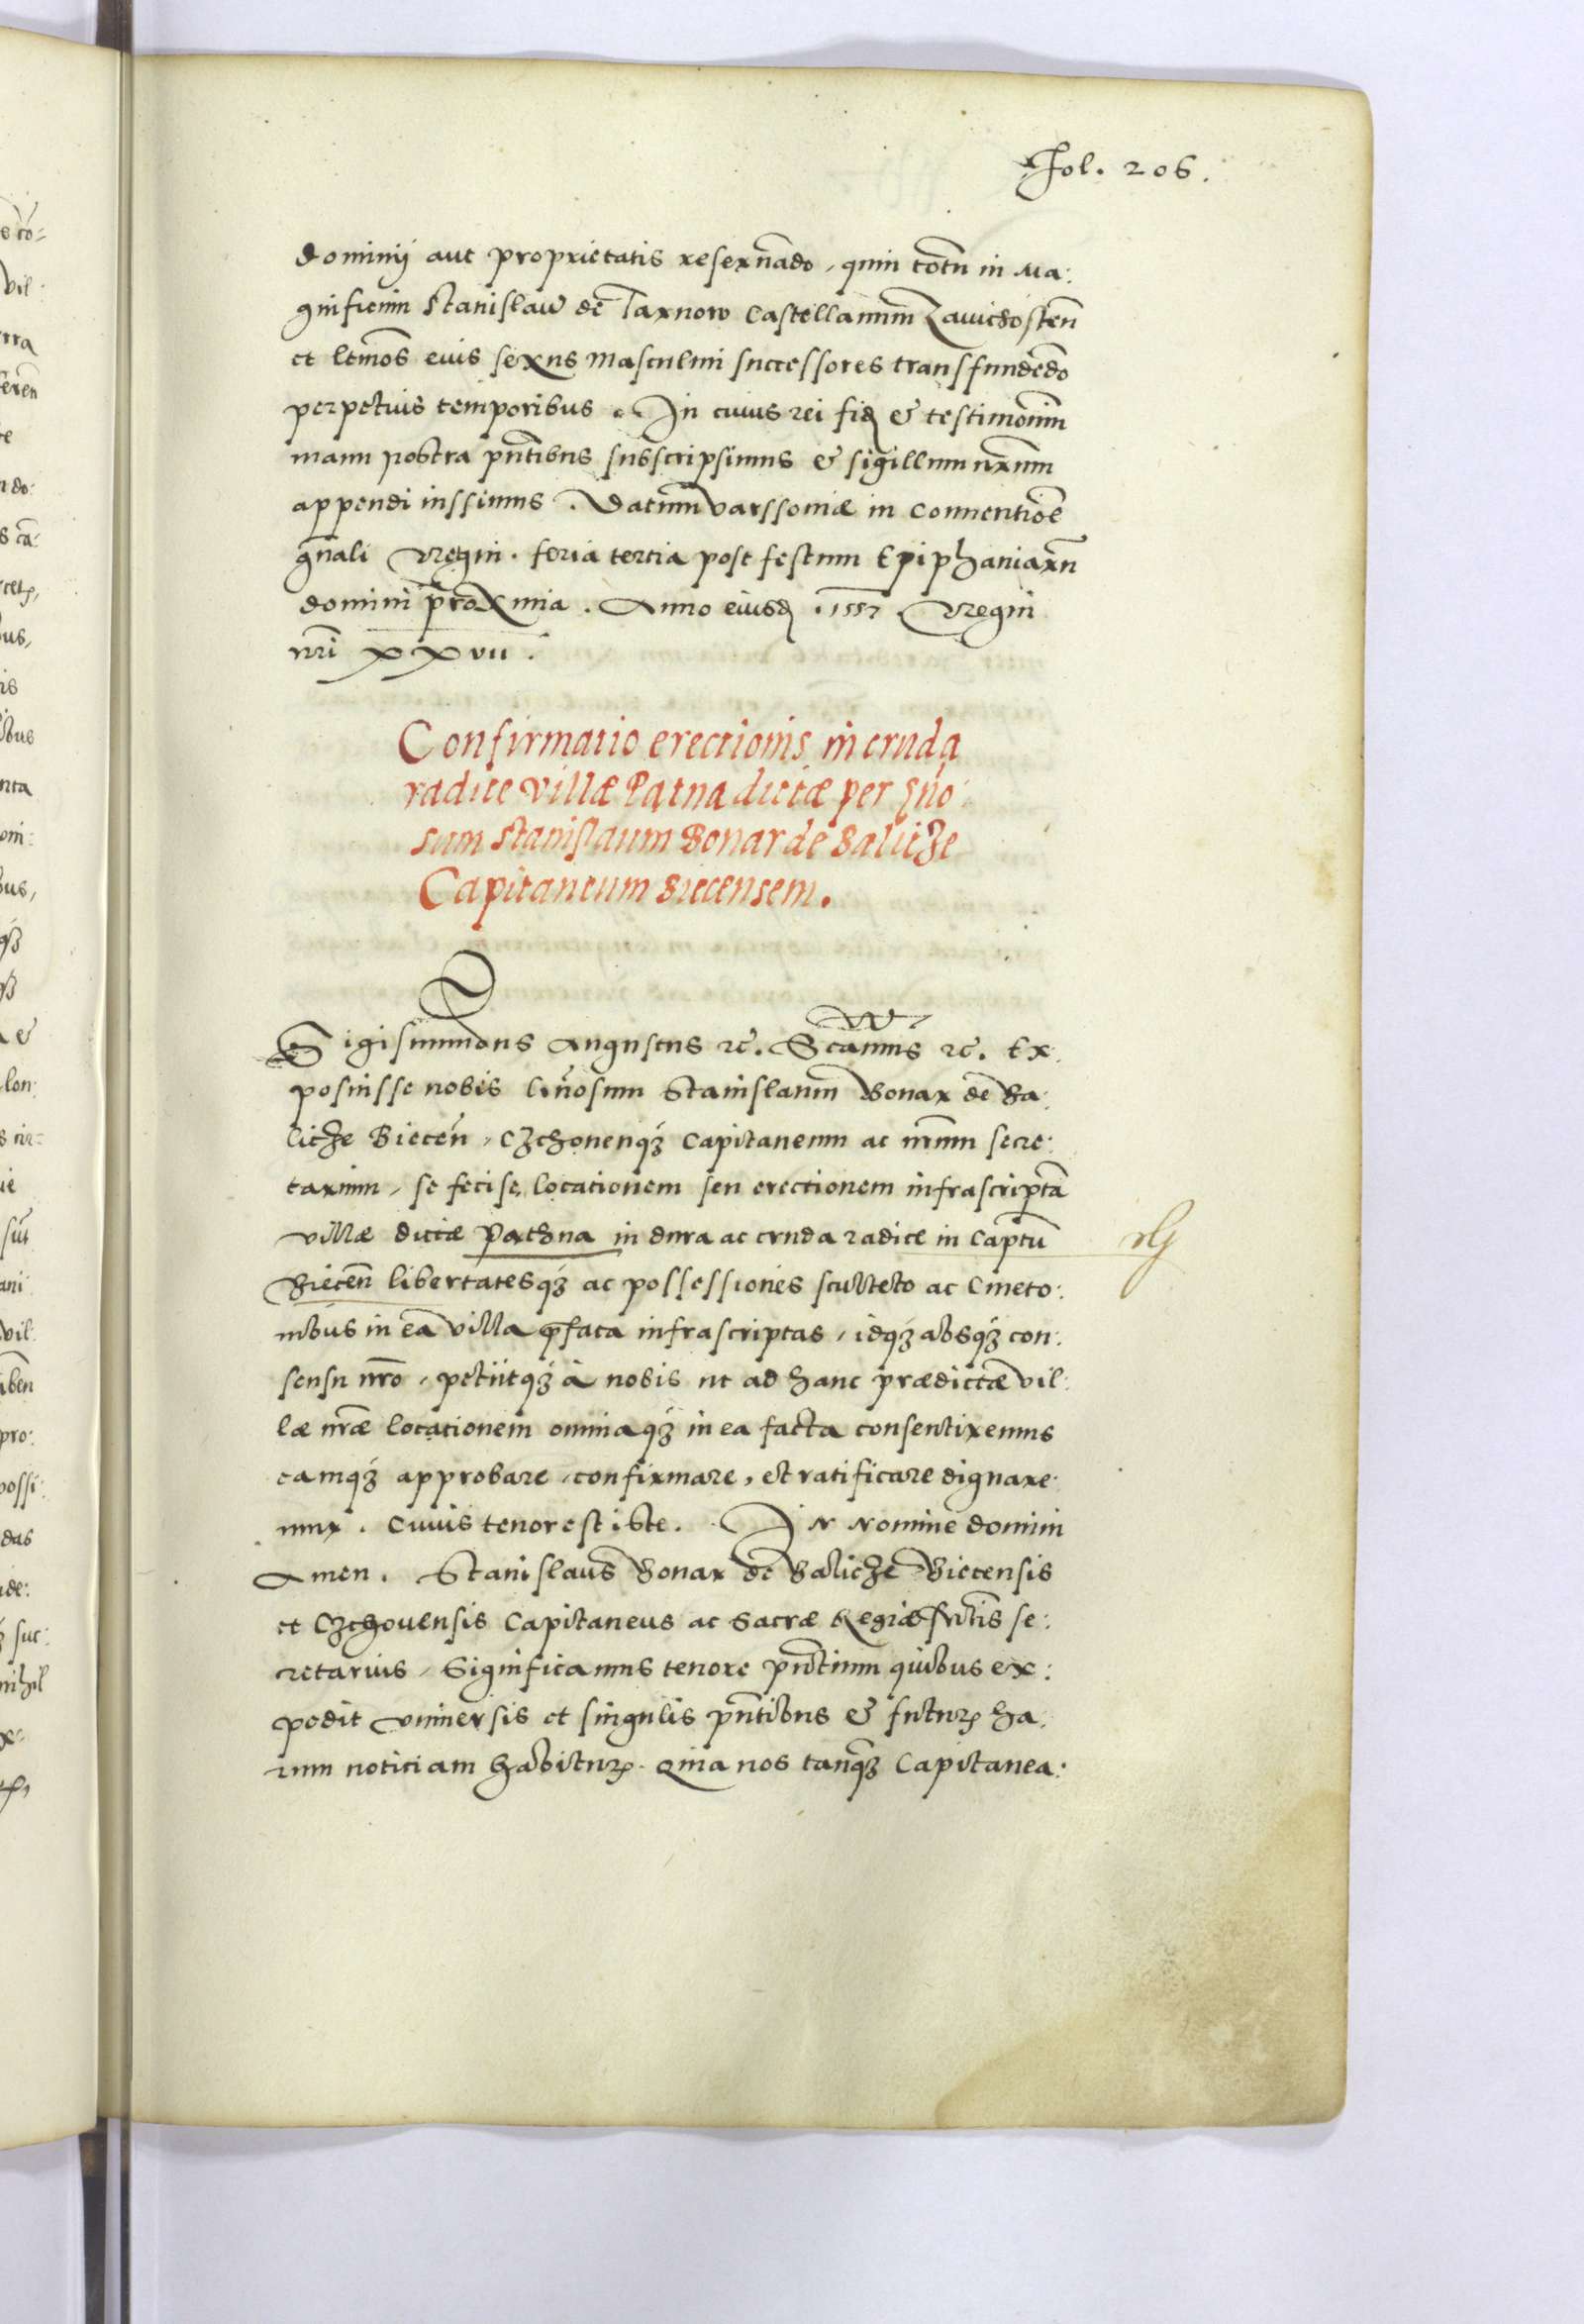 Fol. 206.
dominij aut proprietatis reseruãdo, quin totũ in Ma:
gnificum Stanislaũ de Tarnow Castellanum Zauichosteñ
et ltimos eius sexus masculini successores transfundẽdo
perpetuis temporibus. In cuius rei fidẽ & testimoniũ
manu nostra pñtibus subscripsimus & sigillum nrum
appendi iussimus. Datum Varssouiæ in Conuentiõe
gñali Regni. feria tertia post festum Epiphaniarũ
domini proxima. Anno eiusd. 1557 Regni
nri XXVII.
Confirmatio erectionis in cruda
radice villæ Patna dictæ per gño
sum Stanislaum Bonar de Balicze
Capitaneum Biecensem.
Sigismundus Augustus etc. Sicamus etc. Ex:
posuisse nobis Gñosum Stanislaum Bonar de Ba:
licze Bieceñ, Czchoueñq3 Capitaneum ac nrum secre:
tarium, se fecise locationem seu erectionem infrascriptã
villæ dictæ Pathna in dura ac cruda radice in Captũ
Bieceñ libertatesq3 ac possessiones sculteto ac Cmeto:
nibus in eã villa præfata infrascriptas, idq3 absq3 con:
sensu nro, petiitq3 à nobis ut ad hanc prædictæ vil:
læ nræ locationem omniaq3 in ea facta consentiremus
eamq3 approbare, confirmare, et ratificare dignare:
mur. Cuius tenor est iste. IN Nomine domini
Amen. Stanislaus Bonar de Balicze Biecensis
et Czchouensis Capitaneus ac Sacræ Regiæ Mtis se:
cretarius, Significamus tenore pñtium quibus ex:
pedit Vniuersis et singulis pñtibus & futur. ha:
rum noticiam habitur. Quia nos tanq3 Capitanea: